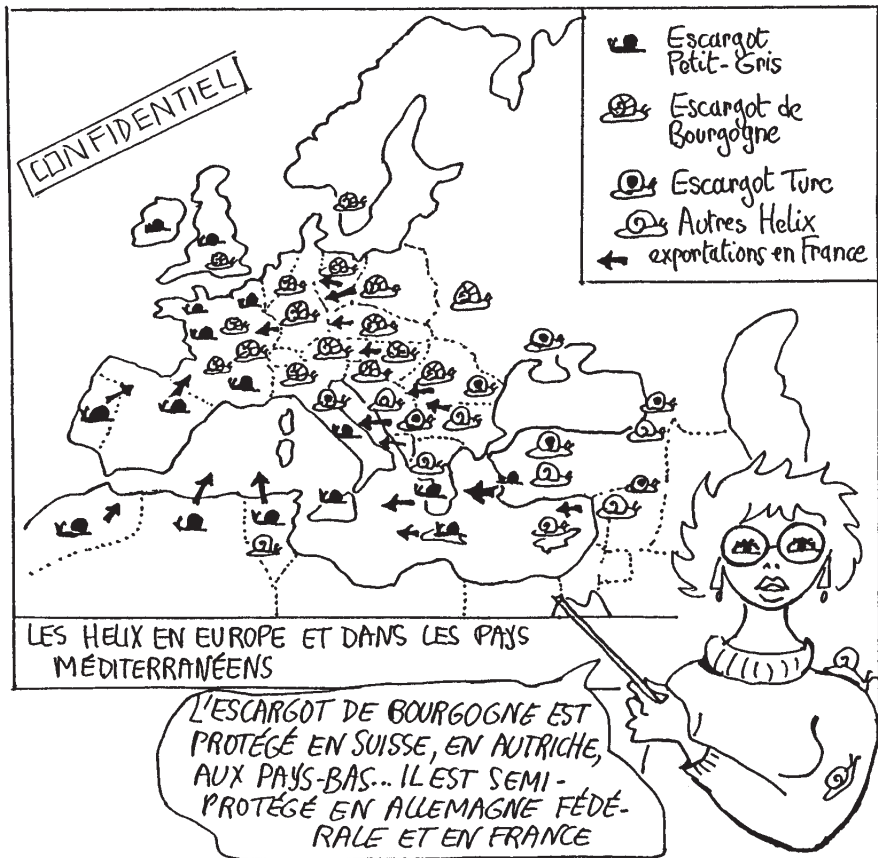 CONFIDENTIEL
Escargot
Petit-Gris
Escargot de
Bourgogne
Escargot Turc
Autres Helix
exportations en France
LES HELIX EN EUROPE ET DANS LES PAYS
MÉDITERRANÉENS
L'ESCARGOT DE BOURGOGNE EST
PROTÉGÉ EN SUISSE, EN AUTRICHE,
AUX PAYS-BAS... IL EST SEMI-
PROTÉGÉ EN ALLEMAGNE FÉDÉ-
RALE ET EN FRANCE